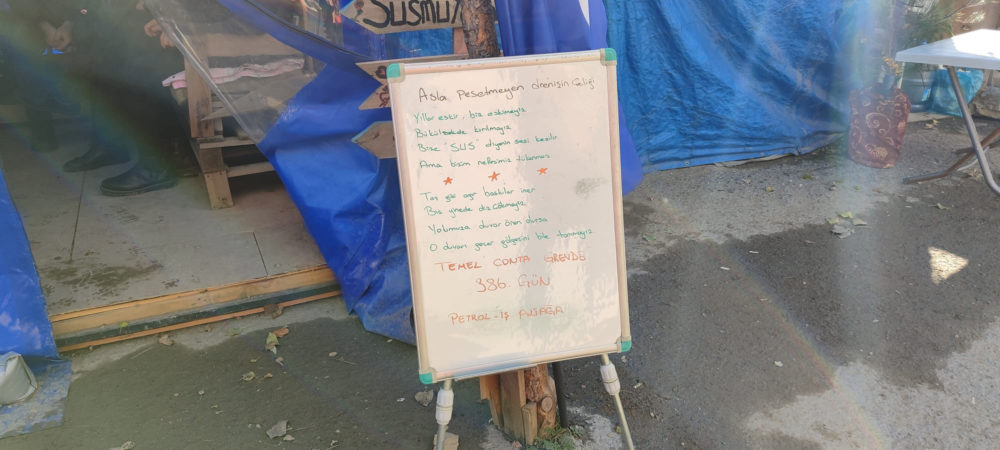 SUSMU
Asla Pesetmeyen direnişin Geliği
Yıllar eskir, biz eskimeyiz
Bükülsekde kırılmayız
Bize "SUS" diyenin sesi kesilir
Ama bizim nefesimiz tükenmez
Taş gibi ağır baskılar iner
Biz yinede diz Çökmeyiz
Yolumuza duvar ören dursa
O duvarı geçer gölgesini bile tanımayız
TEMEL CONTA GREVDE
386. GÜN
PETROL-İŞ ALİAĞA